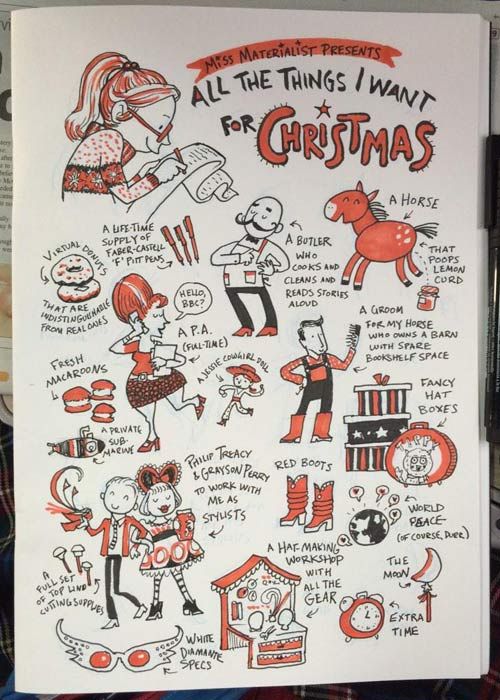 MISS MATERIALIST PRESENTS
ALL THE THINGS I WANT
FOR CHRISTMAS
A HORSE
THAT
POOPS
LEMON
CURD
A BUTLER
WHO
COOKS AND
CLEANS AND
READS STORIES
ALOUD
A LIFE-TIME
SUPPLY OF
FABER-CASTELL
'F' PITT PENS
VIRTUAL DONUTS
THAT ARE
INDISTINGUISHABLE
FROM REAL ONES
HELLO,
BBC?
A P.A.
(FULL-TIME)
A GROOM
FOR MY HORSE
WHO OWNS A BARN
WITH SPARE
BOOKSHELF SPACE
FRESH
MACAROONS
A JESSIE COWGIRL DOLL
FANCY
HAT
BOXES
A PRIVATE
SUB-
MARINE
PHILIP TREACY
& GRAYSON PERRY
TO WORK WITH
ME AS
STYLISTS
RED BOOTS
WORLD
PEACE
(OF COURSE, DURR)
A FULL SET
OF TOP LINO
CUTTING SUPPLIES
A HAT-MAKING
WORKSHOP
WITH
ALL THE
GEAR
THE
MOON
EXTRA
TIME
WHITE
DIAMANTE
SPECS